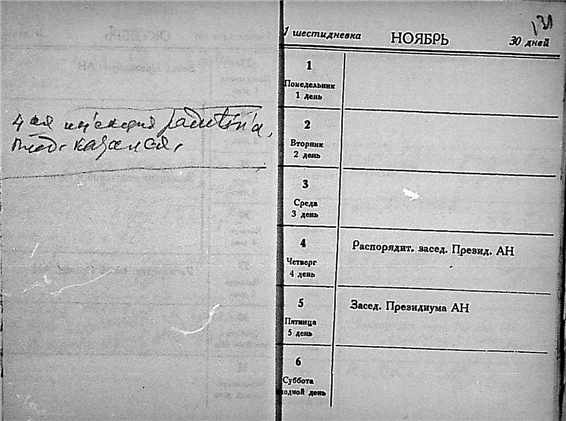 4 ая инъекция
131
1 шестидневка НОЯБРЬ 30 дней
1
Понедельник
1 день
2
Вторник
2 день
3
Среда
3 день
4
Четверг
4 день
Распорядит. засед. Презид. АН
5
Пятница
5 день
Засед. Президиума АН
6
Суббота
ходной день